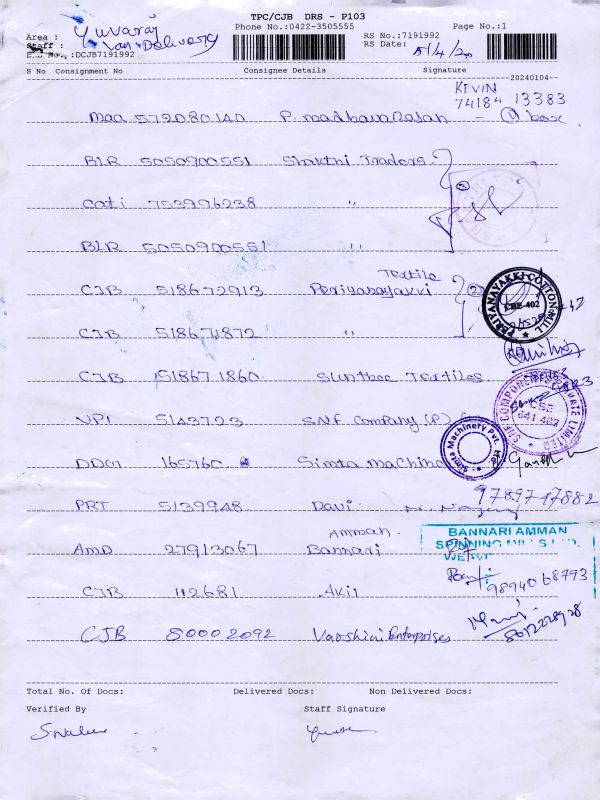 TPC/CJB DRS - P103
Phone No.:0422-3505555
Page No.:1
Area : Yuvaraj
Staff : Van Delivery
RS No.:7191992
RS Date: 5/4/24
DRS No. :DCJB7191992
S No Consignment No Consignee Details Signature
20240104
KEVIN
74184 13383
maa 572080140 P. madhavarasan = 1 box
BLR 5050900551 Shakthi Traders
Coti 753996238 "
BLR 5050900551 "
Textile
CJB 518672913 Periyanayakki
PERIYANAYAKKI COTTON MILL
CBE-402
CJB 518671872 "
CJB 518671860 Sunthee Textiles
VPI 5143723 SNF Company (P)
SNF COMPONENTS PRIVATE LIMITED
641 402
DDG 165760 Simta machine
Simta Machinery Pvt. Ltd.
PRT 5139948 Davi
97897 17882
Amman
AMD 27913067 Bannari
BANNARI AMMAN
SPINNING MILLS LTD.
98940 68793
CJB 112681 Akil
CJB 80002092 Varshini Enterprises
Total No. Of Docs: Delivered Docs: Non Delivered Docs:
Verified By Staff Signature